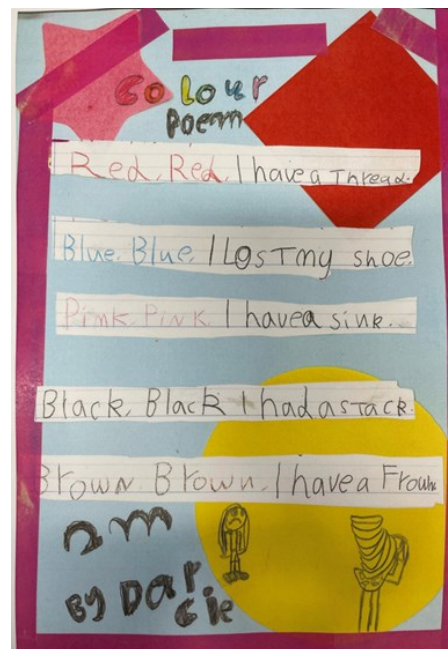 Colour
Poem
Red, Red, I have a Thread.
Blue, Blue, I Lost my shoe.
Pink, Pink, I have a sink.
Black, Black I had a stack.
Brown, Brown, I have a Frown
By Dar
cie